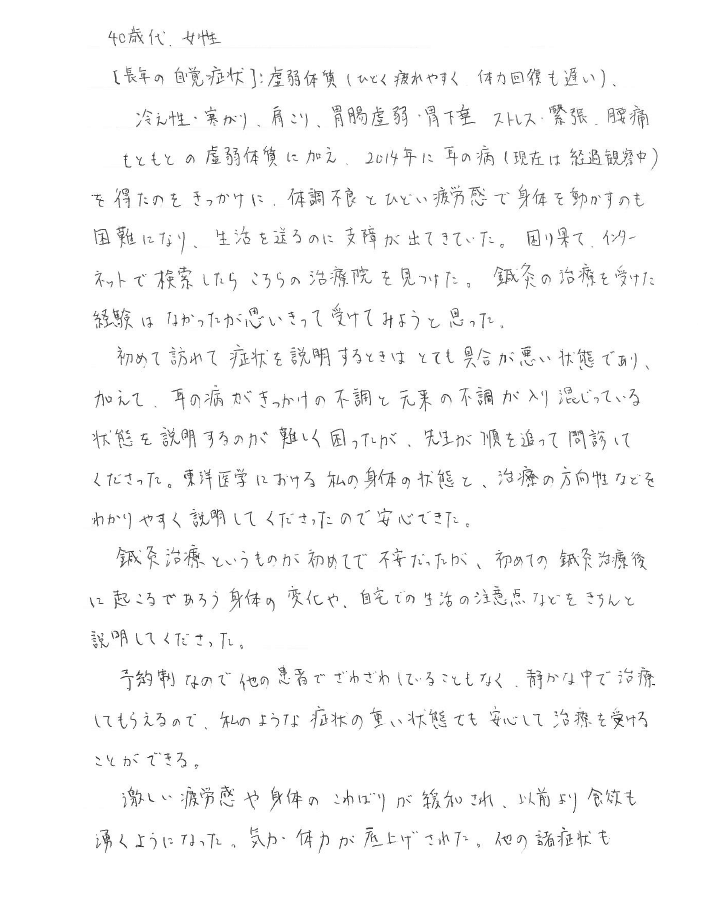 40歳代、女性
[長年の自覚症状]：虚弱体質（ひどく疲れやすく 体力回復も遅い）、
冷え性・寒がり、肩こり、胃腸虚弱・胃下垂 ストレス・緊張、腰痛
もともとの虚弱体質に加え、2014年に耳の病（現在は経過観察中）
を得たのをきっかけに、体調不良とひどい疲労感で身体を動かすのも
困難になり、生活を送るのに支障が出てきていた。困り果て、インター
ネットで検索したらこちらの治療院を見つけた。鍼灸の治療を受けた
経験はなかったが思いきって受けてみようと思った。
初めて訪れて症状を説明するときはとても具合が悪い状態であり、
加えて、耳の病がきっかけの不調と元来の不調が入り混じっている
状態を説明するのが難しく困ったが、先生が順を追って問診して
くださった。東洋医学における私の身体の状態と、治療の方向性などを
わかりやすく説明してくださったので安心できた。
鍼灸治療というものが初めてで不安だったが、初めての鍼灸治療後
に起こるであろう身体の変化や、自宅での生活の注意点などをきちんと
説明してくださった。
予約制なので他の患者でざわざわしていることもなく、静かな中で治療
してもらえるので、私のような症状の重い状態でも安心して治療を受ける
ことができる。
激しい疲労感や身体のこわばりが緩和され、以前より食欲も
湧くようになった。気力・体力が底上げされた。他の諸症状も